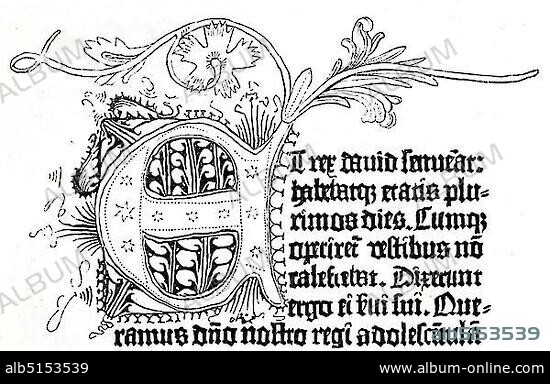 ET rex david senuerat:
habebatqꝫ etatis plu-
rimos dies. Cumqꝫ
operireť vestibus nō
calefiebat. Dixerunt
ergo ei ſui sui. Que-
ramus dño nostro regi adolescētulā
alb5153539
alb5153539
www.album-online.com